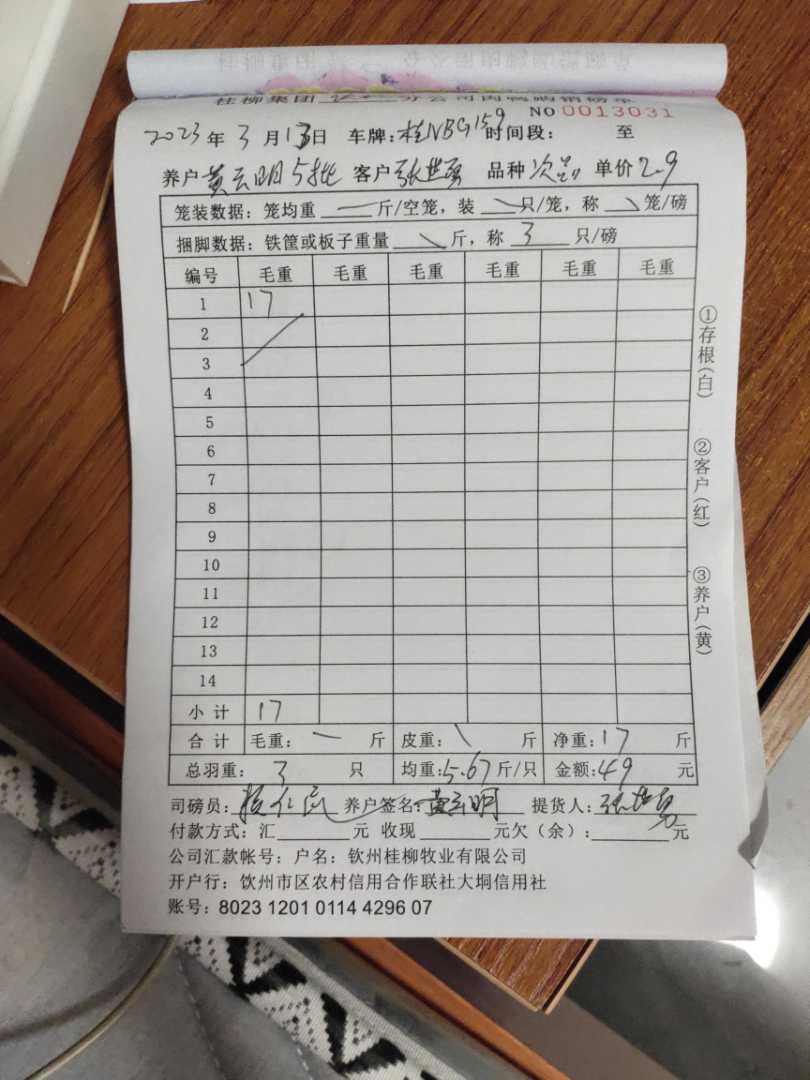 桂柳集团 分公司肉鸭购销磅单
NO 0013031
2023年3月13日 车牌:桂NBG159 时间段: 至
养户 黄云明5批 客户 张世勇 品种 次品 单价 2.9
笼装数据: 笼均重 — 斤/空笼, 装 \ 只/笼, 称 \ 笼/磅
捆脚数据: 铁筐或板子重量 \ 斤, 称 3 只/磅
编号 毛重 毛重 毛重 毛重 毛重 毛重
1 17
2
3
4
5
6
7
8
9
10
11
12
13
14
小计 17
合计 毛重: — 斤 皮重: \ 斤 净重: 17 斤
总羽重: 3 只 均重: 5.67 斤/只 金额: 49 元
司磅员: 养户签名: 黄云明 提货人: 张世勇
付款方式: 汇 元 收现 元欠(余): 元
公司汇款帐号: 户名: 钦州桂柳牧业有限公司
开户行: 钦州市区农村信用合作联社大垌信用社
账号: 8023 1201 0114 4296 07
①存根(白)
②客户(红)
③养户(黄)